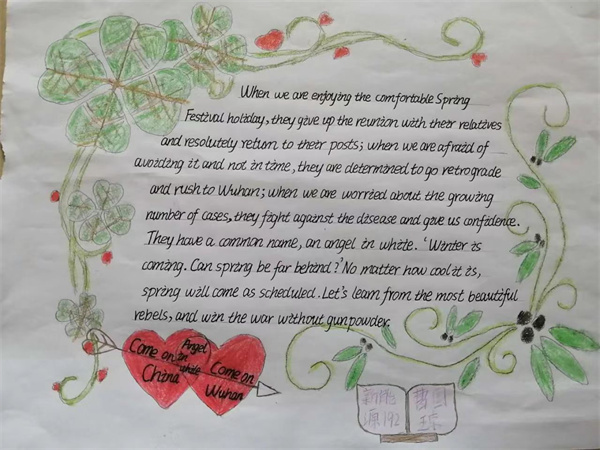 When we are enjoying the comfortable Spring
Festival holiday, they give up the reunion with their relatives
and resolutely return to their posts; when we are afraid of
avoiding it and not in time, they are determined to go retrograde
and rush to Wuhan; when we are worried about the growing
number of cases, they fight against the disease and give us confidence.
They have a common name, an angel in white. 'Winter is
coming. Can spring be far behind?' No matter how cool it is,
spring will come as scheduled. Let's learn from the most beautiful
rebels, and win the war without gunpowder.
Come on
China
Angel
in
white
Come on
Wuhan
新能
源192
曹国